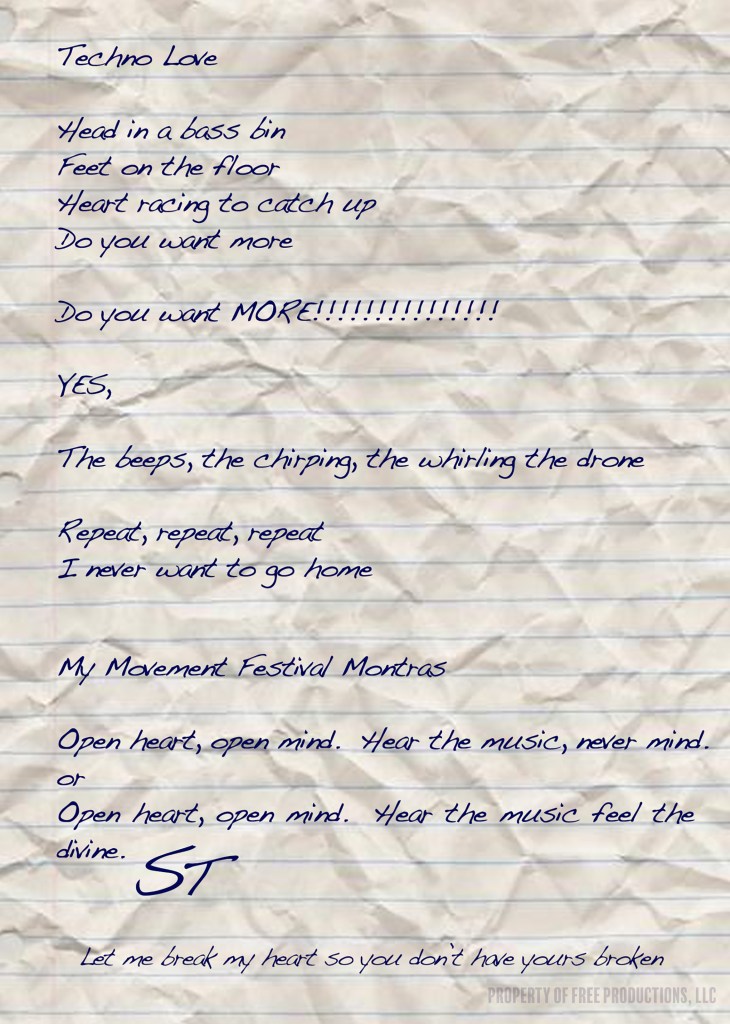 Techno Love
Head in a bass bin
Feet on the floor
Heart racing to catch up
Do you want more
Do you want MORE!!!!!!!!!!!!!!!
YES,
The beeps, the chirping, the whirling the drone
Repeat, repeat, repeat
I never want to go home
My Movement Festival Montras
Open heart, open mind.  Hear the music, never mind.
or
Open heart, open mind.  Hear the music feel the
divine.
ST
Let me break my heart so you don't have yours broken
PROPERTY OF FREE PRODUCTIONS, LLC